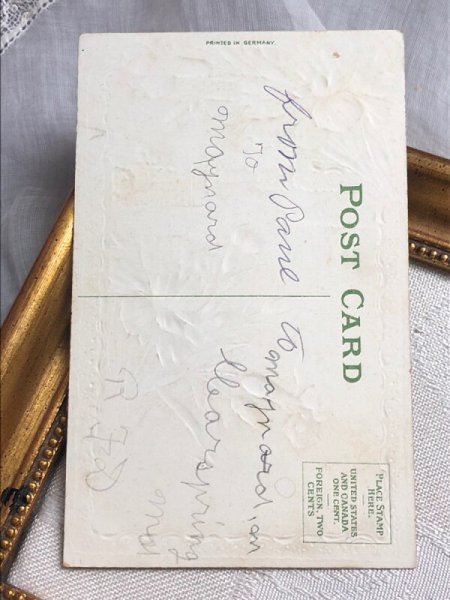 PRINTED IN GERMANY.
POST CARD
PLACE STAMP
HERE.
UNITED STATES
AND CANADA
ONE CENT.
FOREIGN, TWO
CENTS
from
To
maynard
to maynard
Clearspring
R F D